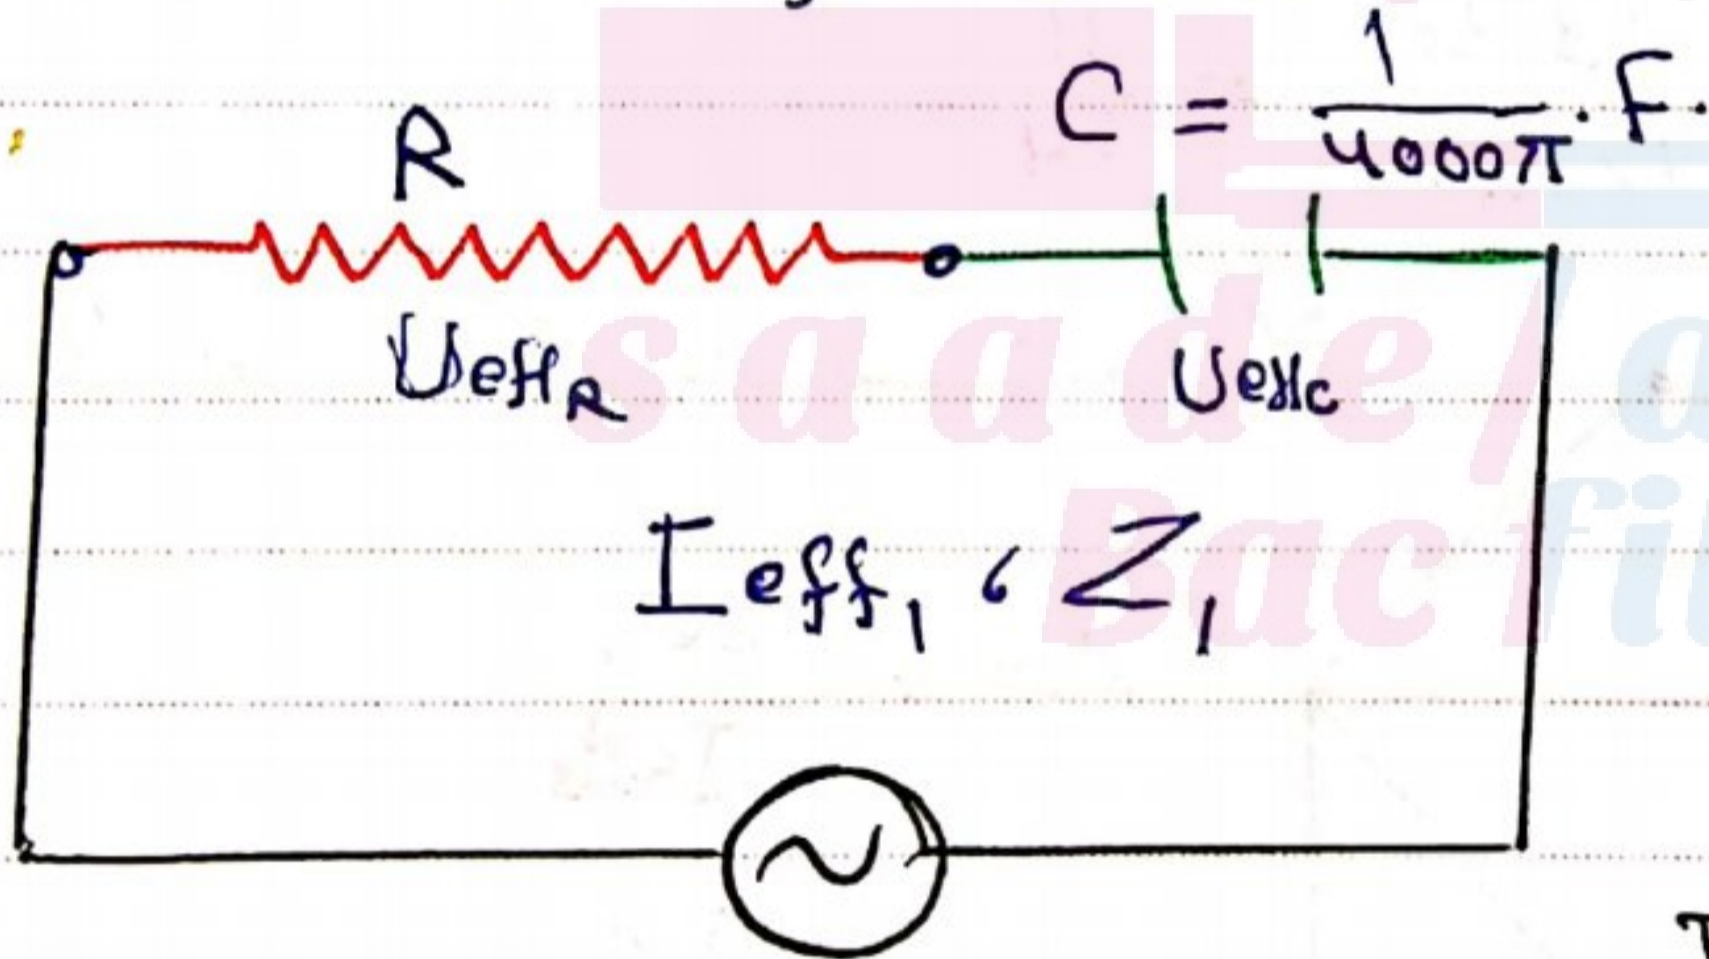 C = 1/4000π . F.
R
UeffR
Ueffc
Ieff1 ، Z1
saade/a
Bac fil